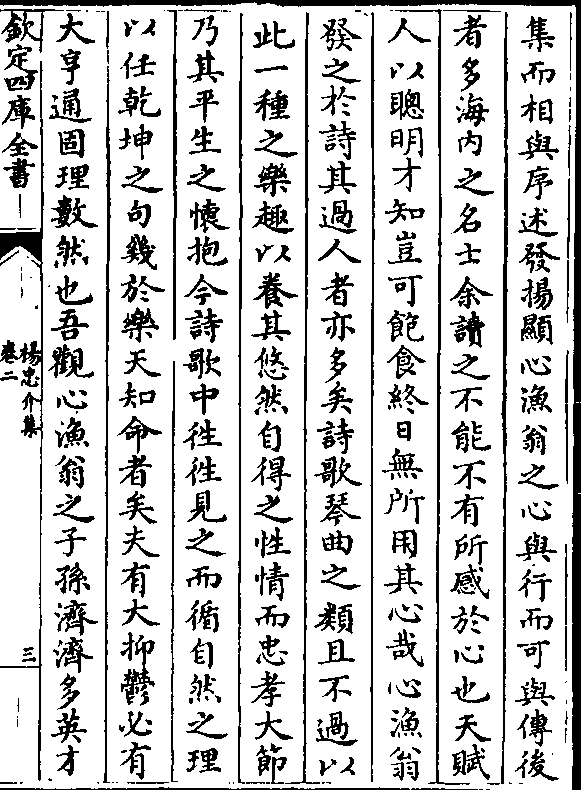 集而相與序述發揚顯心漁翁之心與行而可與傳後
者多海内之名士余讀之不能不有所感於心也天賦
人以聰明才知豈可飽食終日無所用其心哉心漁翁
發之於詩其過人者亦多矣詩歌琴曲之類且不過以
此一種之樂趣以養其悠然自得之性情而忠孝大節
乃其平生之懷抱今詩歌中徃徃見之而循自然之理
以任乾坤之句幾於樂天知命者矣夫有大抑鬱必有
大亨通固理數然也吾觀心漁翁之子孫濟濟多英才
欽定四庫全書
楊忠介集
卷二
三